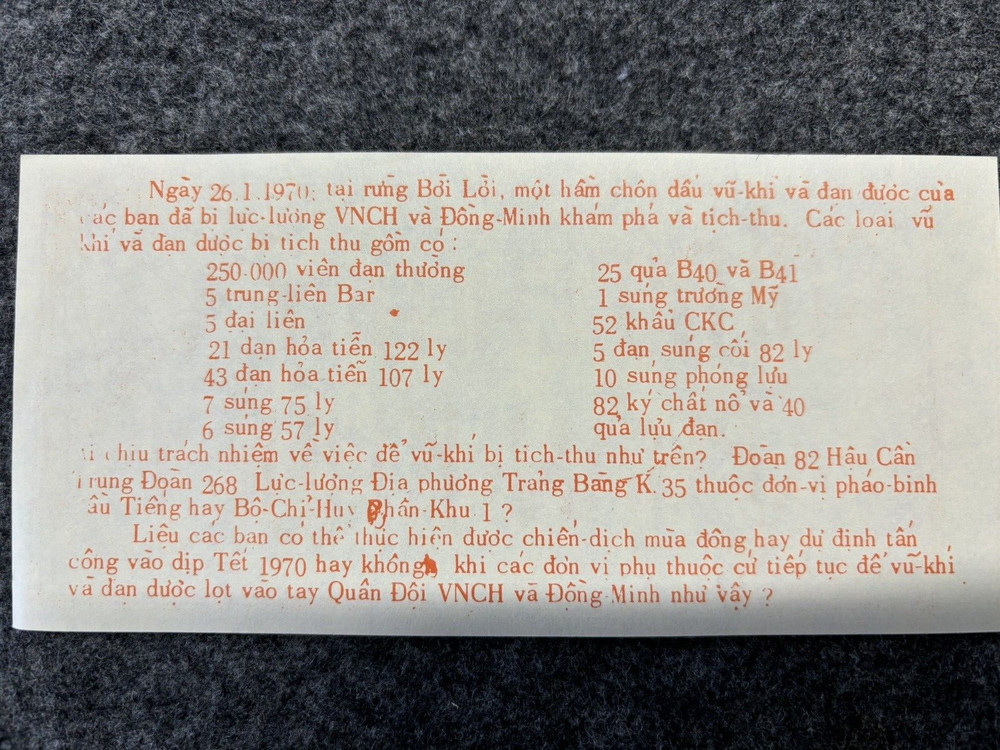 Ngày 26.1.1970: tại rừng Bời Lời, một hầm chôn dấu vũ-khí và đạn dược của
các bạn đã bị lực-lượng VNCH và Đồng-Minh khám phá và tịch-thu. Các loại vũ
khí và đạn dược bị tịch thu gồm có :
250.000 viên đạn thường
5 trung-liên Bar
5 đại liên
21 đạn hỏa tiễn 122 ly
43 đạn hỏa tiễn 107 ly
7 súng 75 ly
6 súng 57 ly
25 qủa B40 và B41
1 súng trường Mỹ
52 khẩu CKC
5 đạn súng cối 82 ly
10 súng phóng lựu
82 ký chất nổ và 40
qủa lựu đạn.
Ai chịu trách nhiệm về việc để vũ-khí bị tịch-thu như trên? Đoàn 82 Hậu Cần
Trung Đoàn 268 Lực-lượng Địa phương Trảng Bàng K.35 thuộc đơn-vị pháo-binh
Dầu Tiếng hay Bộ-Chỉ-Huy Phân Khu 1 ?
Liệu các bạn có thể thực hiện được chiến-dịch mùa đông hay dự định tấn
công vào dịp Tết 1970 hay không, khi các đơn vị phụ thuộc cứ tiếp tục để vũ-khí
và đạn dược lọt vào tay Quân Đội VNCH và Đồng-Minh như vậy ?